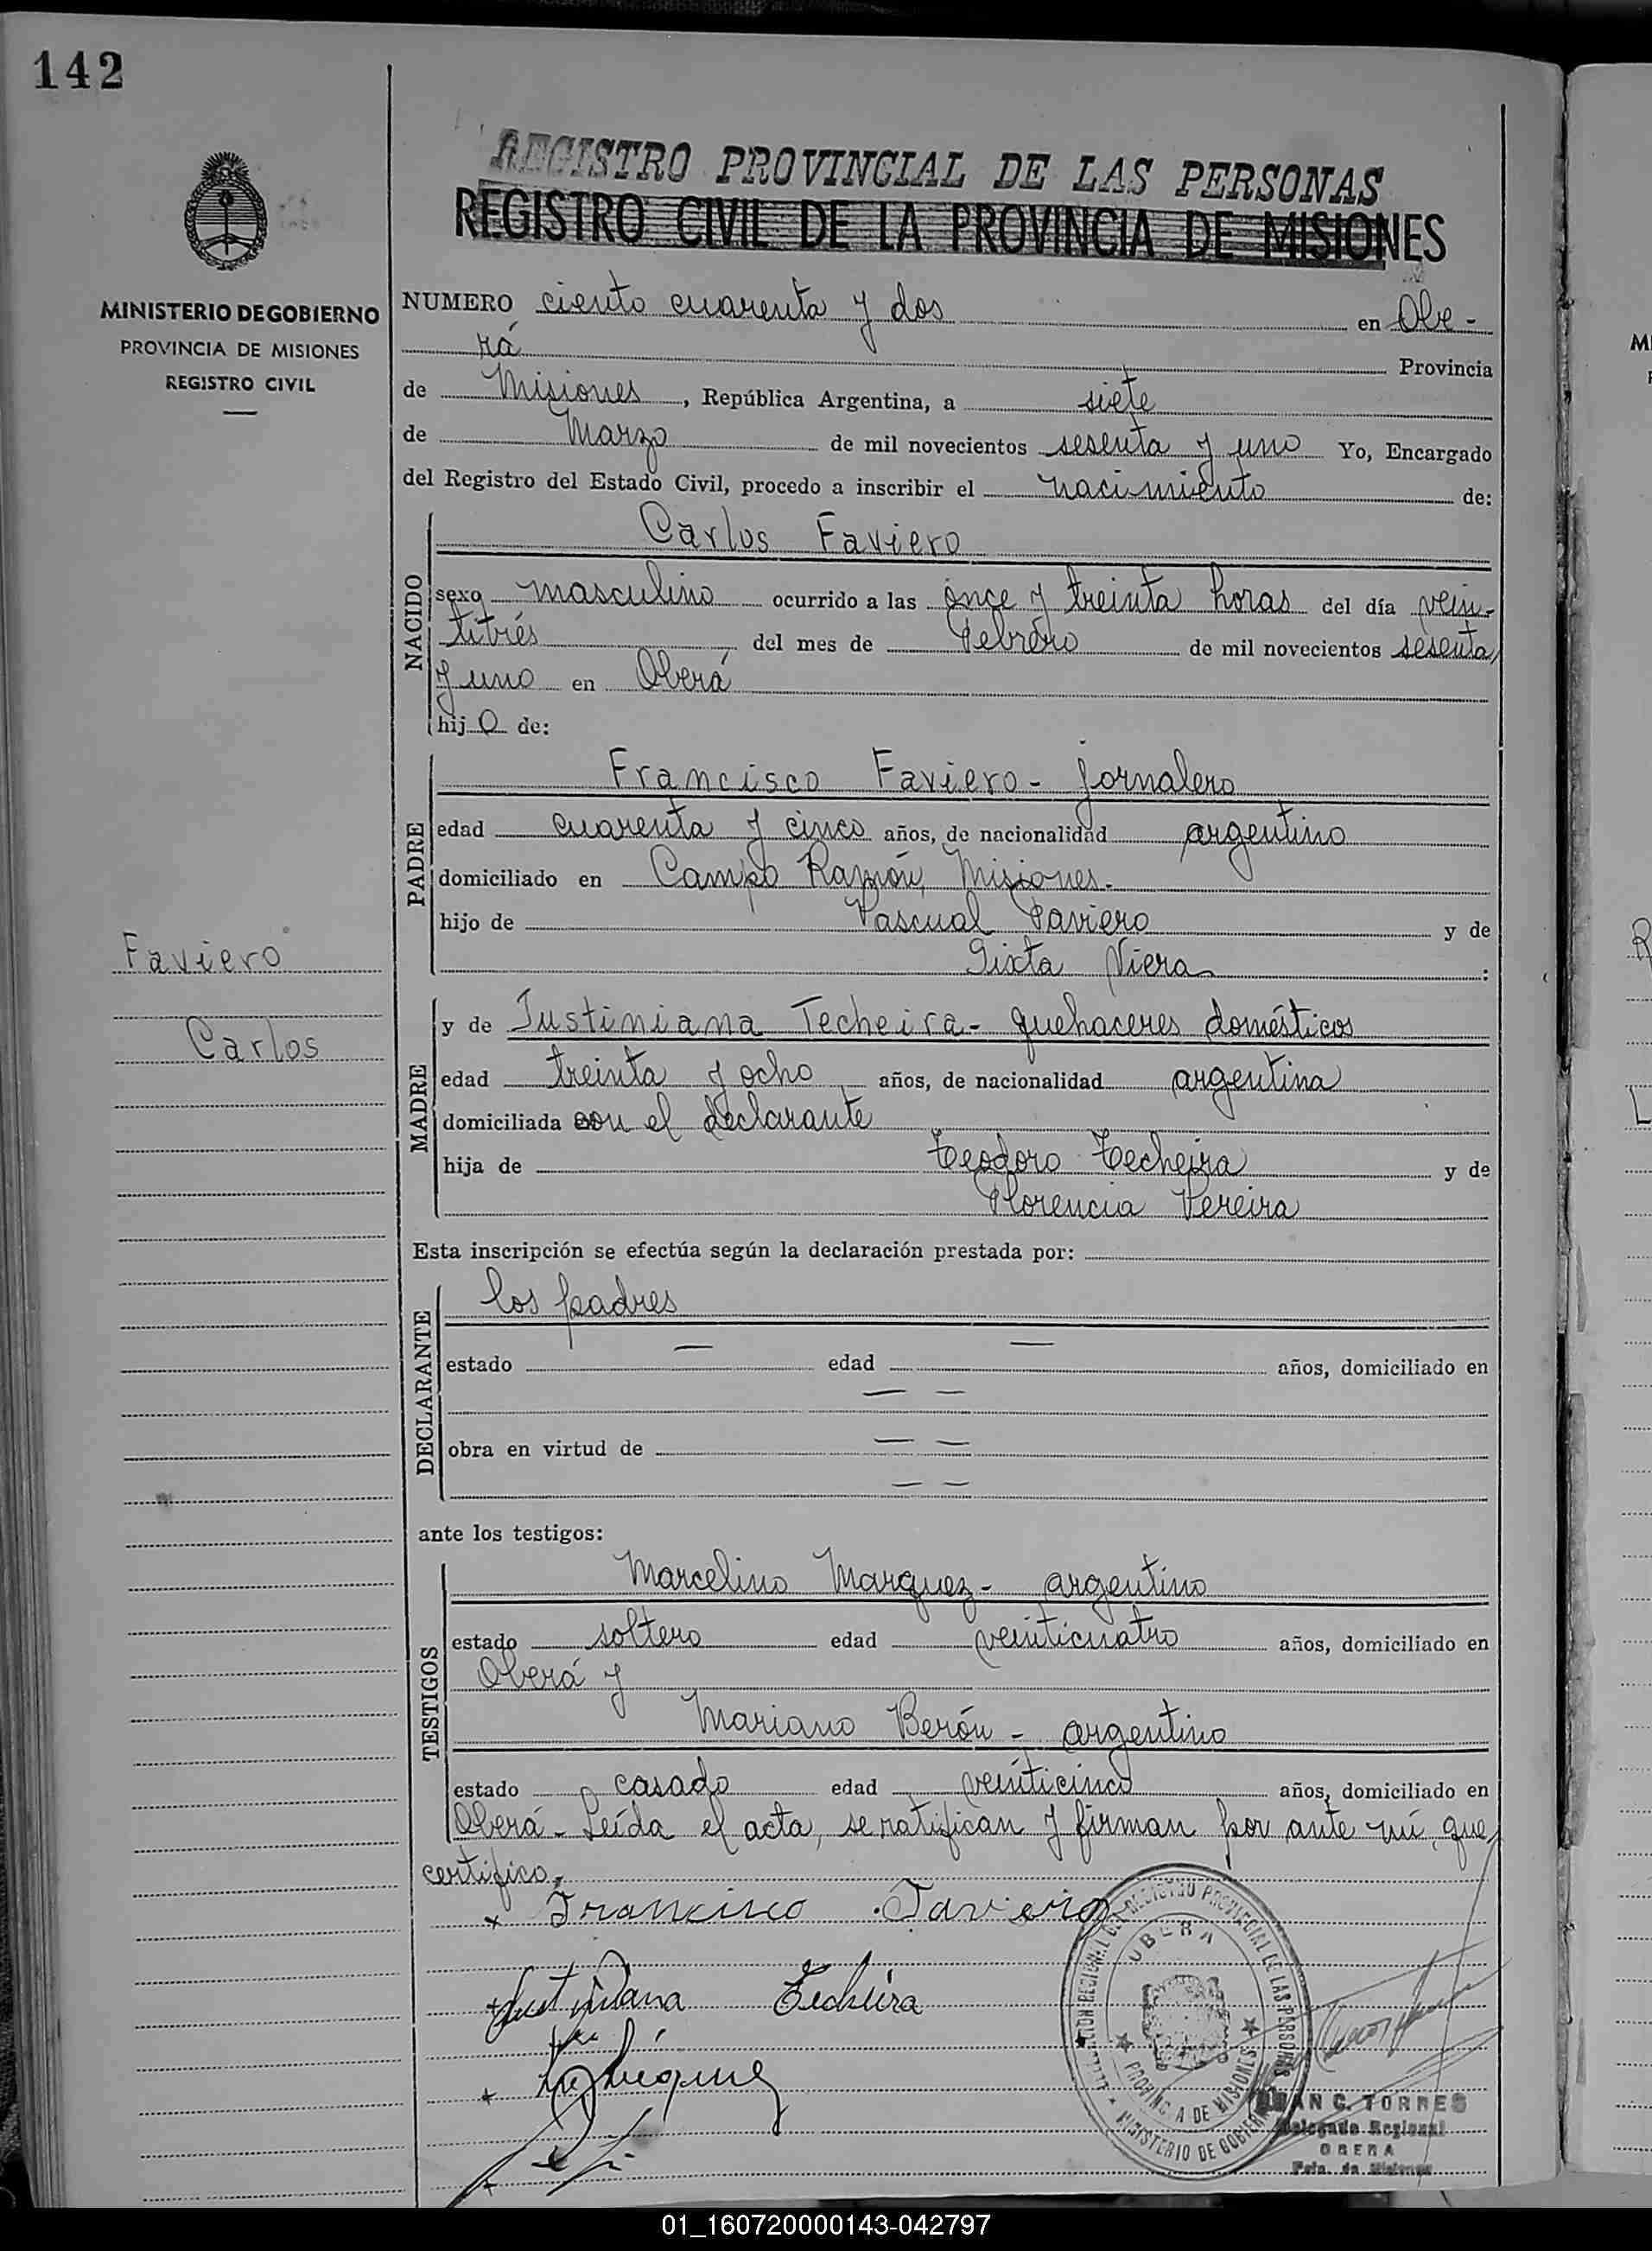 142
REGISTRO PROVINCIAL DE LAS PERSONAS
REGISTRO CIVIL DE LA PROVINCIA DE MISIONES
MINISTERIO DE GOBIERNO
PROVINCIA DE MISIONES
REGISTRO CIVIL
NUMERO ciento cuarenta y dos en Obe-
rá Provincia
de Misiones, República Argentina, a siete
de Marzo de mil novecientos sesenta y uno Yo, Encargado
del Registro del Estado Civil, procedo a inscribir el nacimiento de:
NACIDO
Carlos Faviero
sexo masculino ocurrido a las once y treinta horas del día vein-
titrés del mes de Febrero de mil novecientos sesenta
y uno en Oberá
hijo de:
PADRE
Francisco Faviero - jornalero
edad cuarenta y cinco años, de nacionalidad argentino
domiciliado en Campo Ramón, Misiones.
hijo de Pascual Faviero y de
Sixta Viera :
Faviero
Carlos
MADRE
y de Justiniana Techeira - quehaceres domésticos
edad treinta y ocho años, de nacionalidad argentina
domiciliada con el declarante
hija de Teodoro Techeira y de
Florencia Pereira
Esta inscripción se efectúa según la declaración prestada por:
DECLARANTE
los padres
estado — edad — años, domiciliado en
— —
obra en virtud de — —
— —
ante los testigos:
TESTIGOS
Marcelino Marquez - argentino
estado soltero edad veinticuatro años, domiciliado en
Oberá y
Mariano Berón - argentino
estado casado edad veinticinco años, domiciliado en
Oberá - Leída el acta, se ratifican y firman por ante mí, que
certifico.
x Francisco Faviero
Justiniana Techeira
OBERA
PROVINCIA DE MISIONES
MINISTERIO DE GOBIERNO
JUAN C. TORRES
Delegado Regional
OBERA
Pcia. de Misiones
01_160720000143-042797